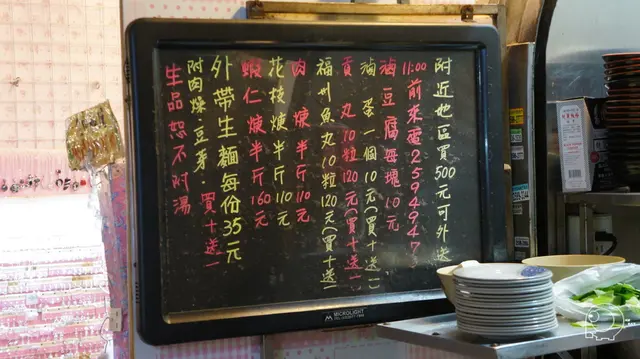 附近地區買500元可外送
11:00前來電25949473
滷豆腐每塊10元
滷蛋一個10元(買十送一)
貢丸10粒120元(買十送一)
福州魚丸10粒120元(買十送一)
肉焿半斤110元
花枝焿半斤110元
蝦仁焿半斤160元
外帶生麵每份35元
附肉燥.豆芽.買十送一
生品恕不附湯
MICROLIGHT